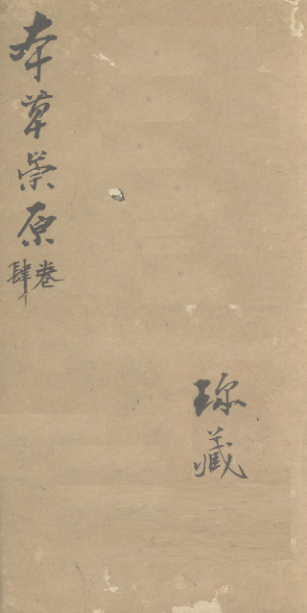 本草崇原
卷肆
珎藏